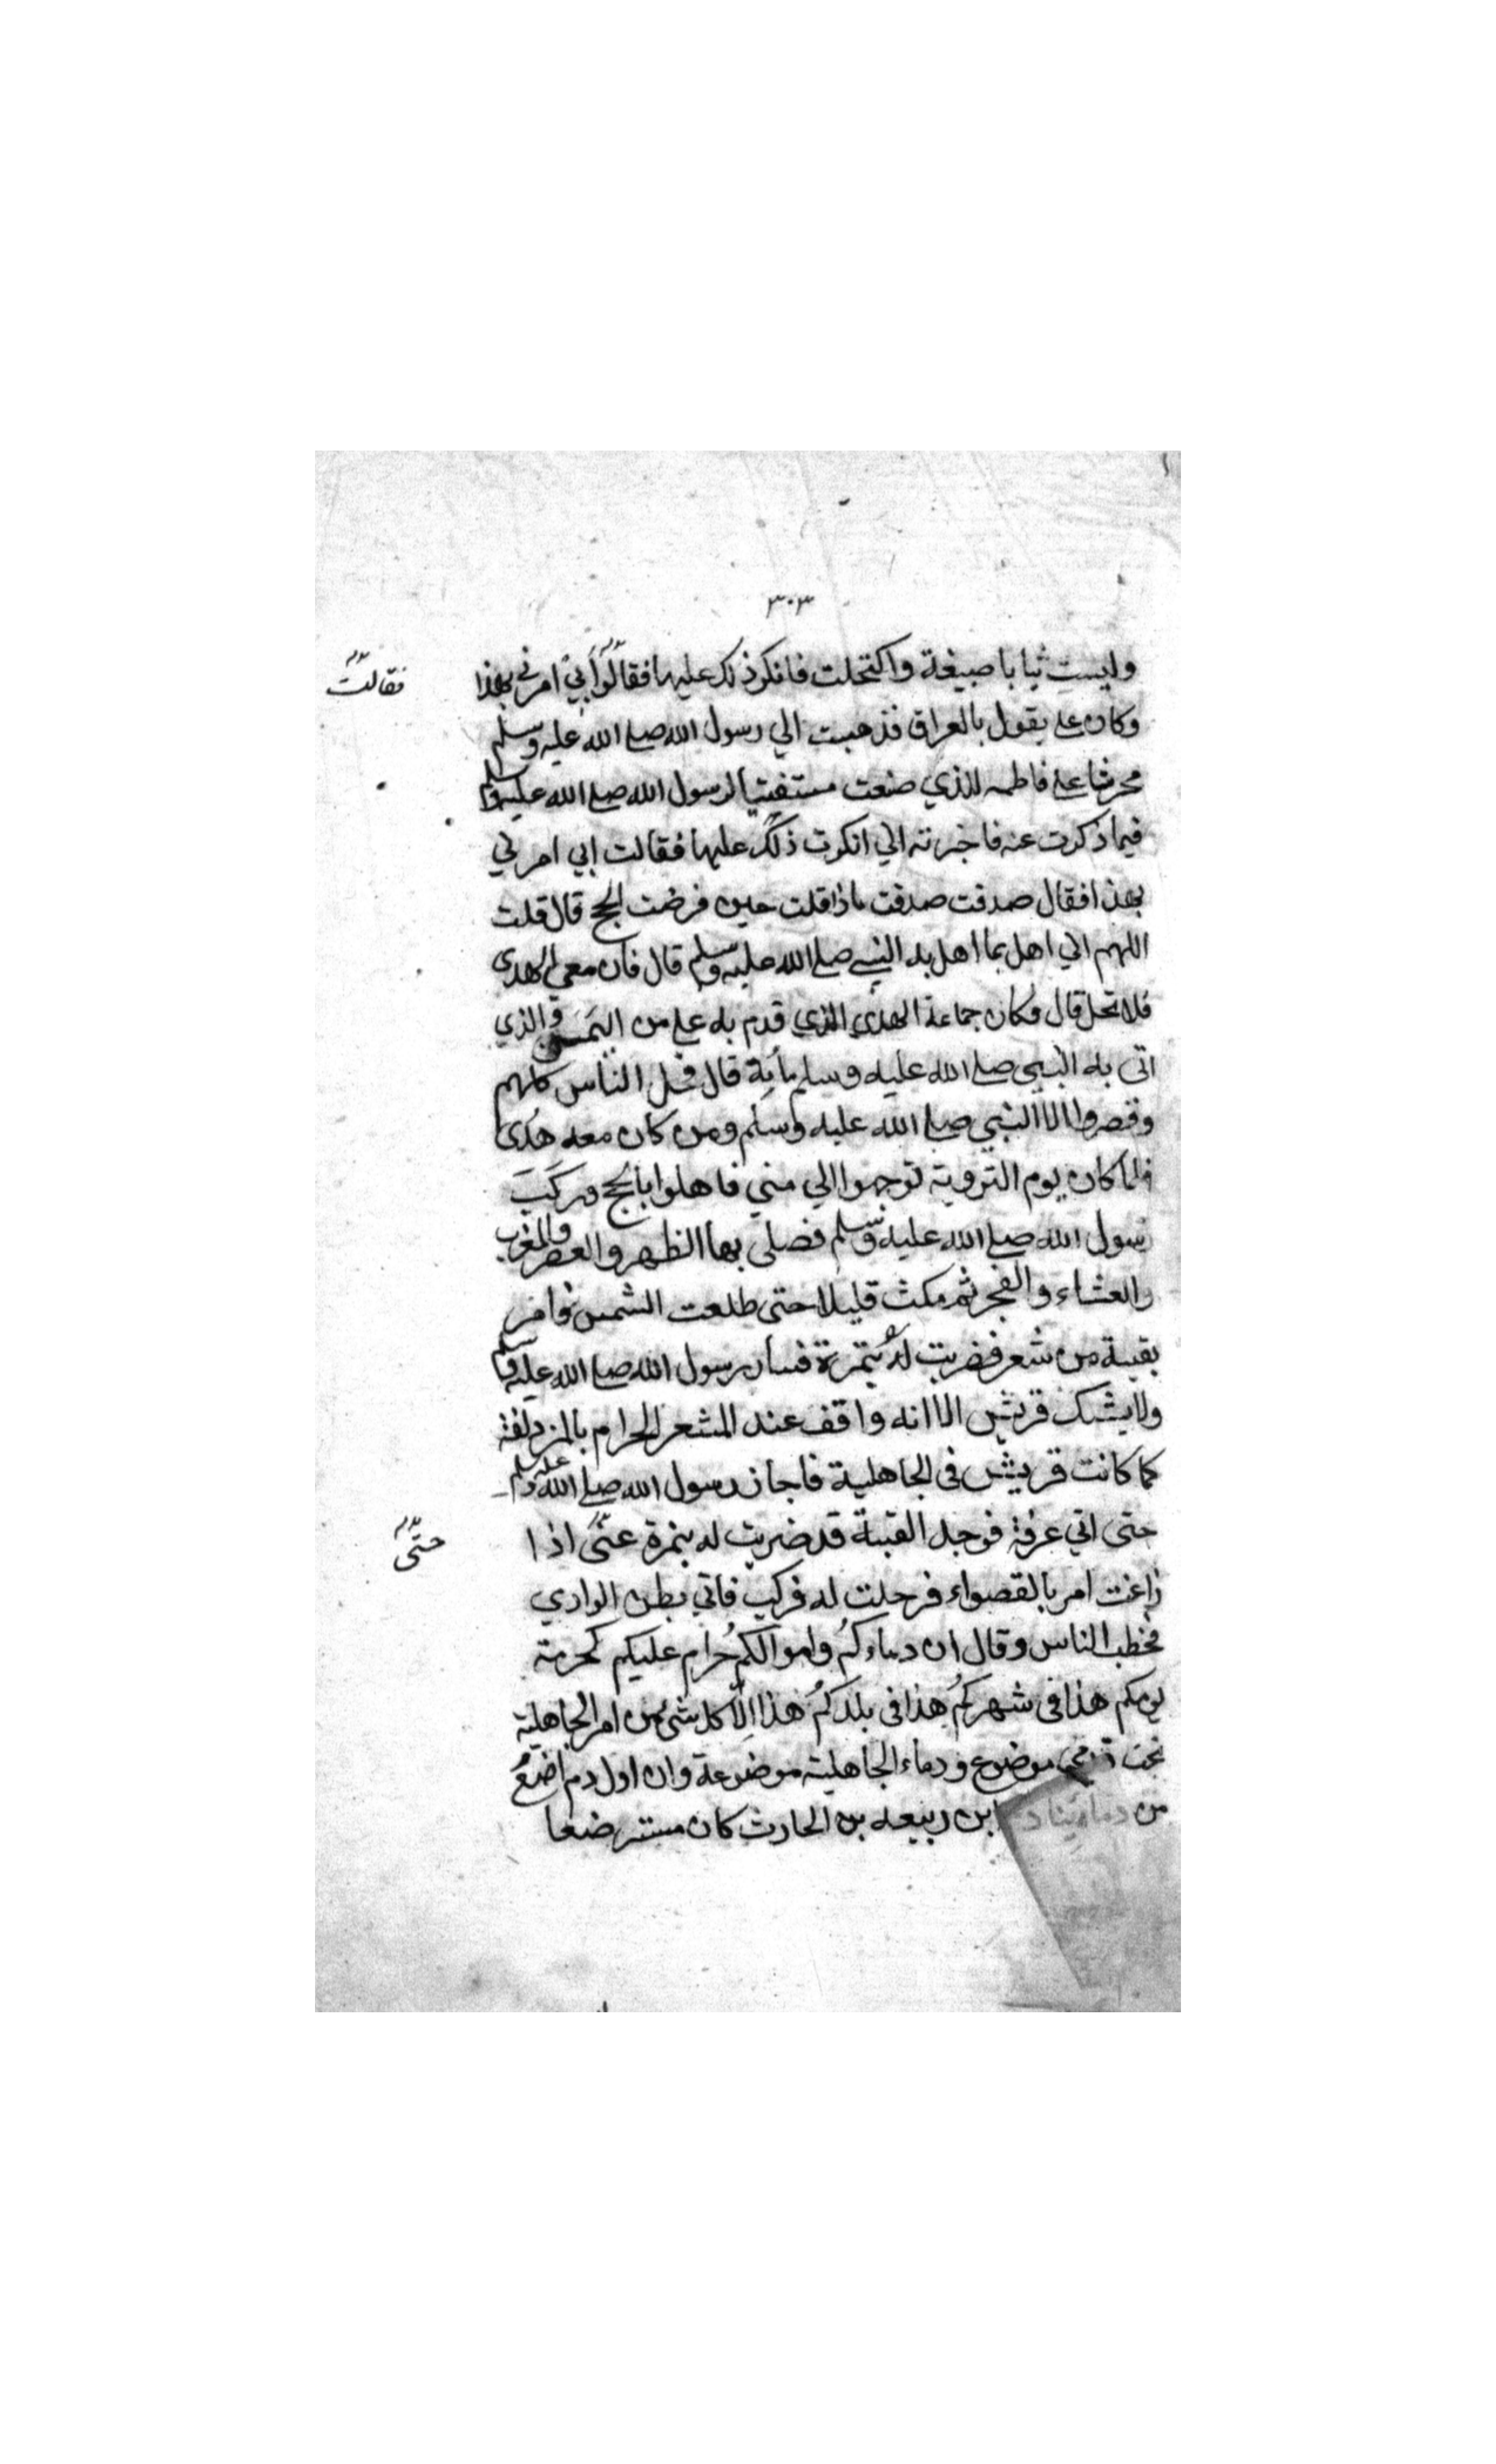 ٣٠٣
ولبست ثيابا صبيغة واكتحلت فانكر ذلك عليها فقالوا أبي امرني بهذا
فقالت
وكان علي يقول بالعراق فذهبت الي رسول الله صلي الله عليه وسلم
محرشا علي فاطمه للذي صنعت مستفتيا لرسول الله صلي الله عليه وسلم
فيما ذكرت عنه فاخبرته اني انكرت ذلك عليها فقالت ابي امرني
بهذا فقال صدقت صدقت ماذا قلت حين فرضت الحج قال قلت
اللهم اني اهل بما اهل به النبي صلي الله عليه وسلم قال فان معي الهدى
فلا تحل قال فكان جماعة الهدي الذي قدم به علي من اليمن والذي
اتى به النبي صلي الله عليه وسلم مأية قال فحل الناس كلهم
وقصروا الا النبي صلي الله عليه وسلم ومن كان معه هدى
فلما كان يوم التروية توجهوا الي مني فاهلوا بالحج وركب
رسول الله صلي الله عليه وسلم فصلى بها الظهر والعصر والمغرب
والعشاء والفجر ثم مكث قليلا حتى طلعت الشمس وامر
بقبة من شعر فضربت له بنمرة فسار رسول الله صلي الله عليه وسلم
ولا يشك قريش الا انه واقف عند المشعر الحرام بالمزدلفة
كما كانت قريش في الجاهلية فاجاز رسول الله صلي الله عليه وسلم
حتى اتي عرفة فوجد القبة قد ضربت له بنمرة عتى اذا
حتى
زاغت امر بالقصواء فرحلت له فركب فاتي بطن الوادي
فخطب الناس وقال ان دماءكم واموالكم حرام عليكم كحرمة
يومكم هذا في شهركم هذا في بلدكم هذا الا كل شئ من امر الجاهلية
تحت قدمي موضوع ودماء الجاهلية موضوعة وان اول دم اضع
من دمائنا دم ابن ربيعه بن الحارث كان مسترضعا